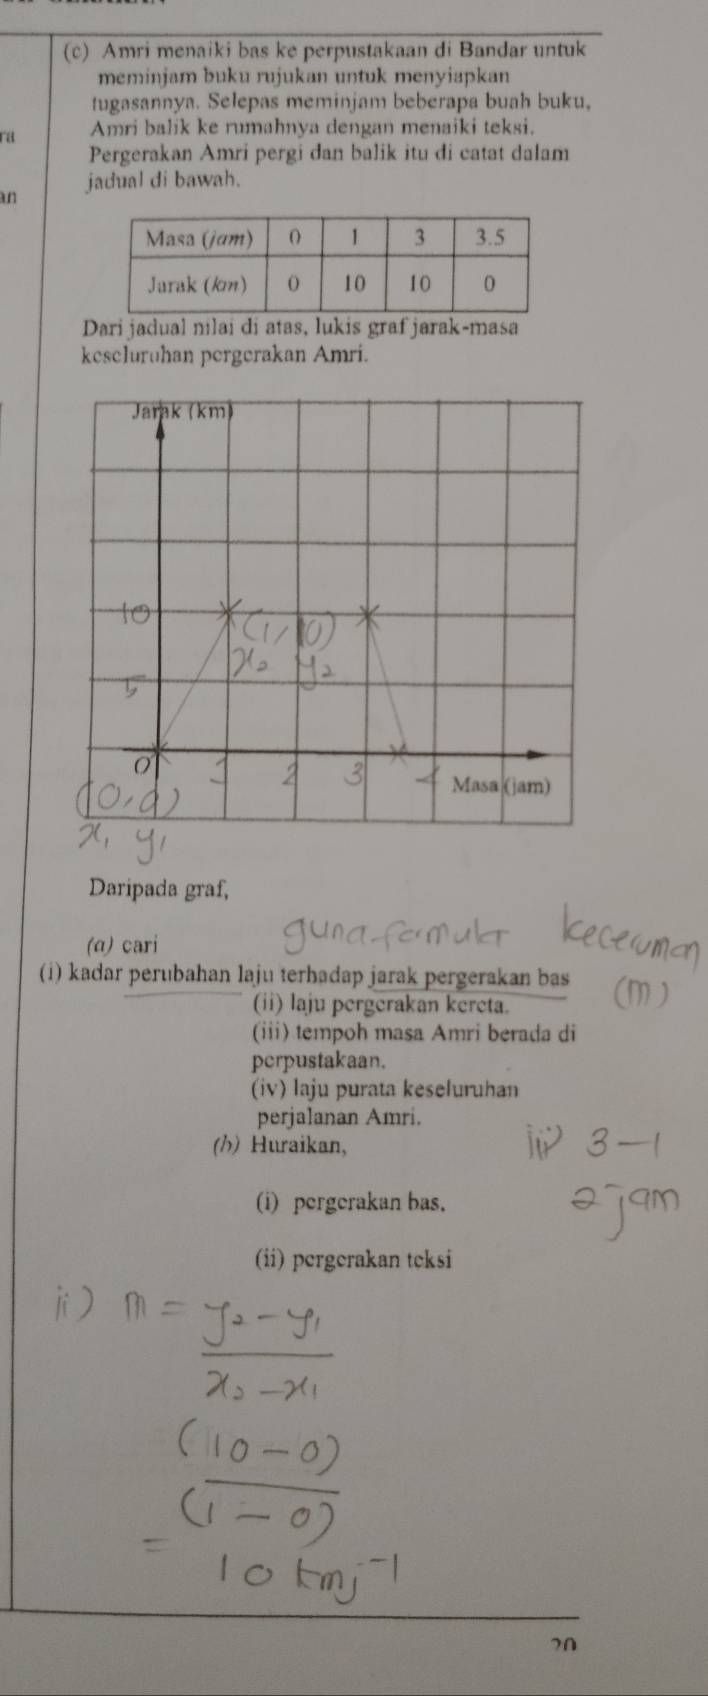 (c) Amri menaiki bas ke perpustakaan di Bandar untuk
meminjam buku rujukan untuk menyiapkan
tugasannya. Selepas meminjam beberapa buah buku,
Amri balik ke rumahnya dengan menaiki teksi.
Pergerakan Amri pergi dan balik itu di catat dalam
jadual di bawah.
ra
an
Masa (jam) 0 1 3 3.5
Jarak (km) 0 10 10 0
Dari jadual nilai di atas, lukis graf jarak-masa
keseluruhan pergerakan Amri.
Jarak (km)
10
(1, 10)
x₂ y₂
5
0 1 2 3 4 Masa (jam)
(0,0)
x₁ y₁
Daripada graf,
guna formula kecerunan
(m)
(a) cari
(i) kadar perubahan laju terhadap jarak pergerakan bas
(ii) laju pergerakan kereta.
(iii) tempoh masa Amri berada di
perpustakaan.
(iv) laju purata keseluruhan
perjalanan Amri.
(b) Huraikan,
iii) 3 - 1
2 jam
(i) pergerakan bas.
(ii) pergerakan teksi
ii) m = y₂ - y₁
x₂ - x₁
(10 - 0)
(1 - 0)
= 10 kmj⁻¹
20